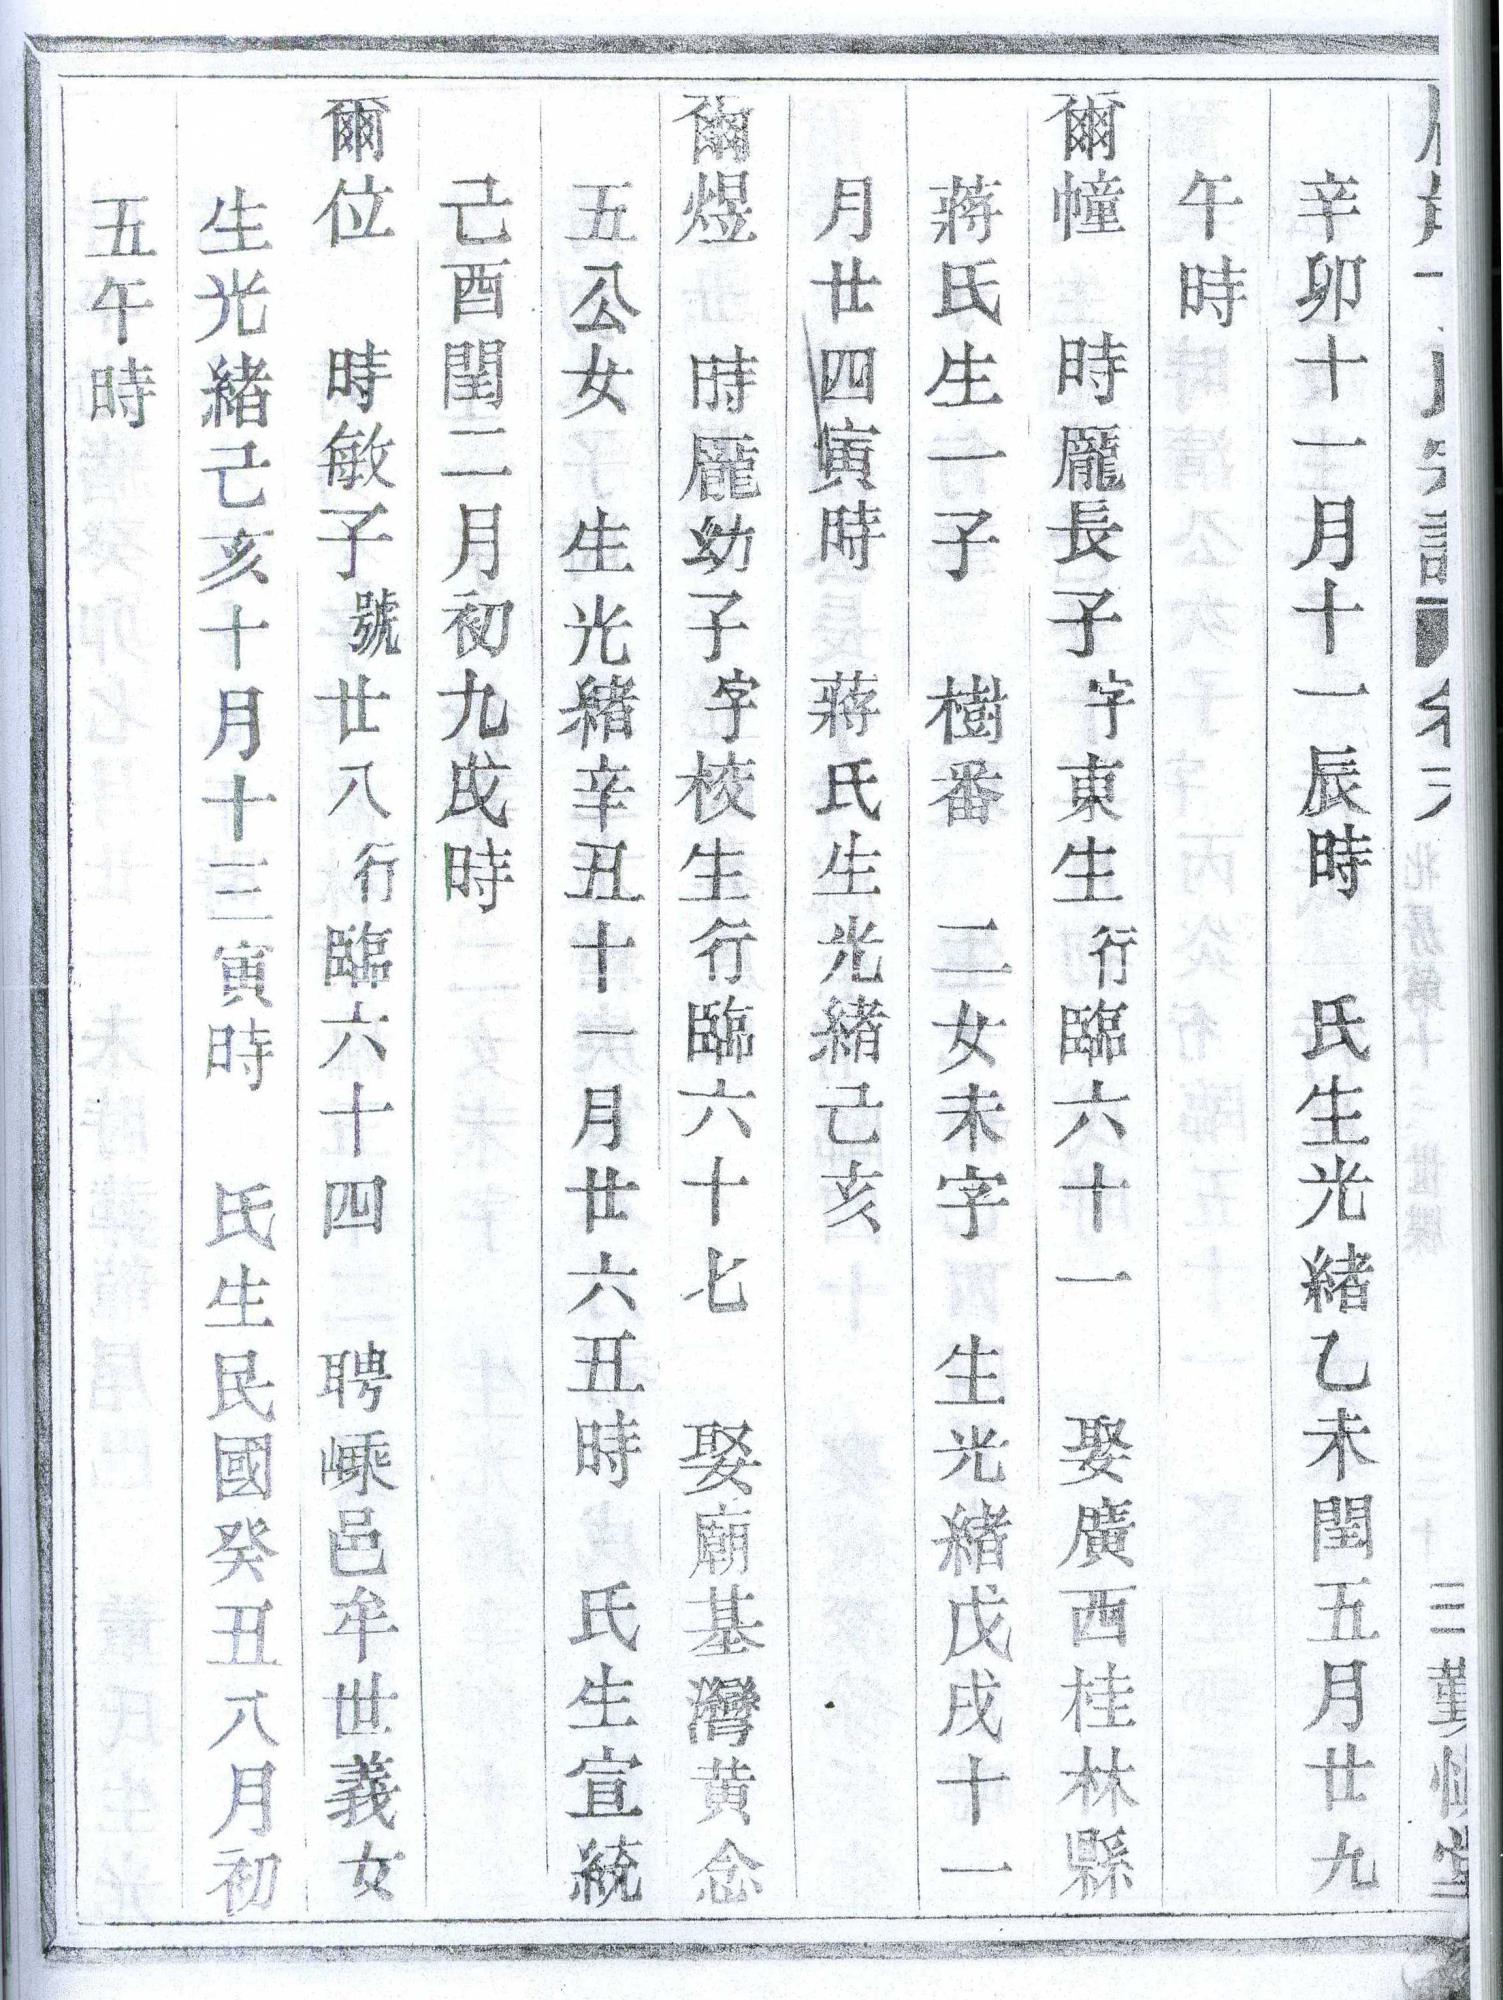 辛卯十一月十一辰時　氏生光緒乙未閏五月廿九
午時
爾幢　時龎長子字東生行臨六十一　娶廣西桂林縣
蔣氏生一子　樹番　二女未字　生光緒戊戌十一
月廿四寅時　蔣氏生光緒己亥
爾煜　時龎幼子字校生行臨六十七　娶廟基灣黄念
五公女　生光緒辛丑十一月廿六丑時　氏生宣統
己酉閏二月初九戌時
爾位　時敏子號廿八行臨六十四　聘嵊邑牟世義女
生光緒己亥十月十三寅時　氏生民國癸丑八月初
五午時